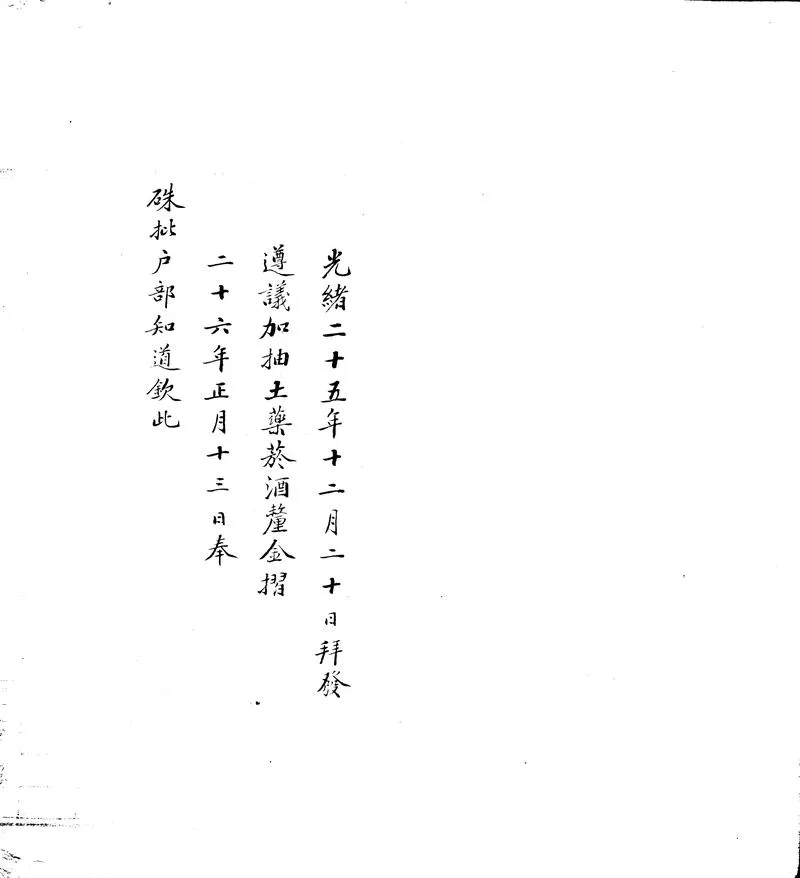 光緒二十五年十二月二十日拜發
遵議加抽土藥菸酒釐金摺
二十六年正月十三日奉
硃批户部知道欽此